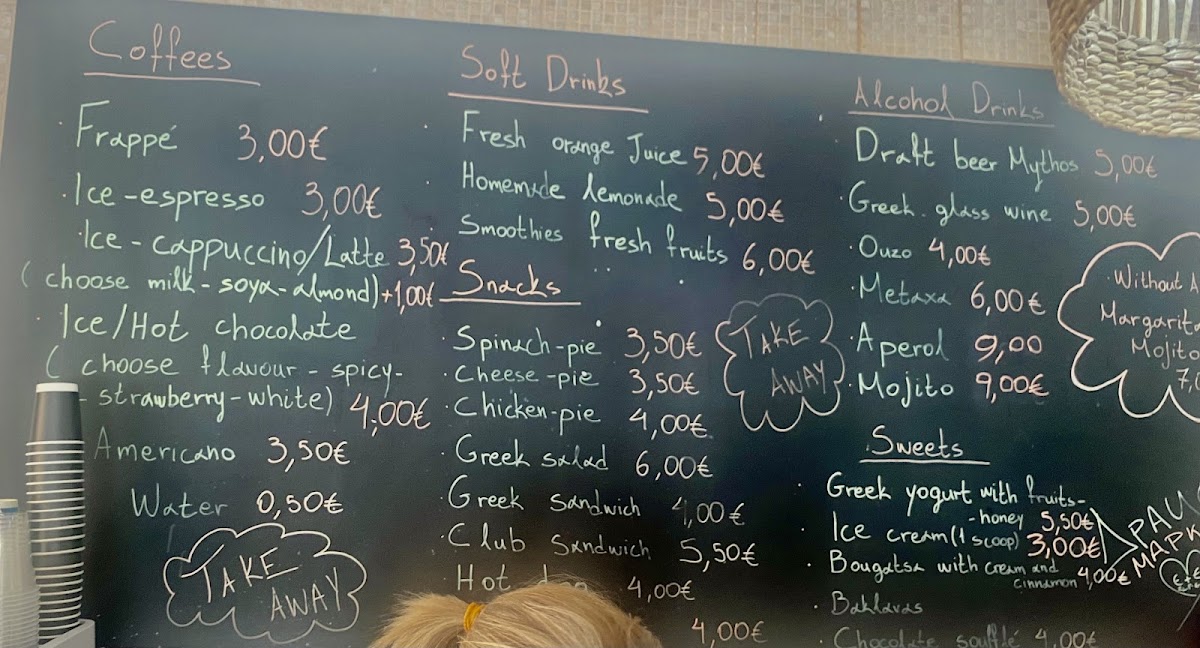 Coffees
Frappé 3,00€
Ice-espresso 3,00€
Ice-cappuccino/Latte 3,50€
(choose milk-soya-almond)+1,00€
Ice/Hot chocolate
(choose flavour-spicy-
-strawberry-white) 4,00€
Americano 3,50€
Water 0,50€
TAKE
AWAY
Soft Drinks
Fresh orange Juice 5,00€
Homemade lemonade 5,00€
Smoothies fresh fruits 6,00€
Snacks
Spinach-pie 3,50€
Cheese-pie 3,50€
Chicken-pie 4,00€
Greek salad 6,00€
Greek sandwich 4,00€
Club sandwich 5,50€
Hot 4,00€
4,00€
TAKE
AWAY
Alcohol Drinks
Draft beer Mythos 5,00€
Greek glass wine 5,00€
Ouzo 4,00€
Metaxa 6,00€
Aperol 9,00
Mojito 9,00€
Without
Margarita
Mojito
Sweets
Greek yogurt with fruits-
-honey 5,50€
Ice cream(1 scoop) 3,00€
Bougatsa with cream and
cinnamon 4,00€
Baklavas
Chocolate soufflé 4,00€